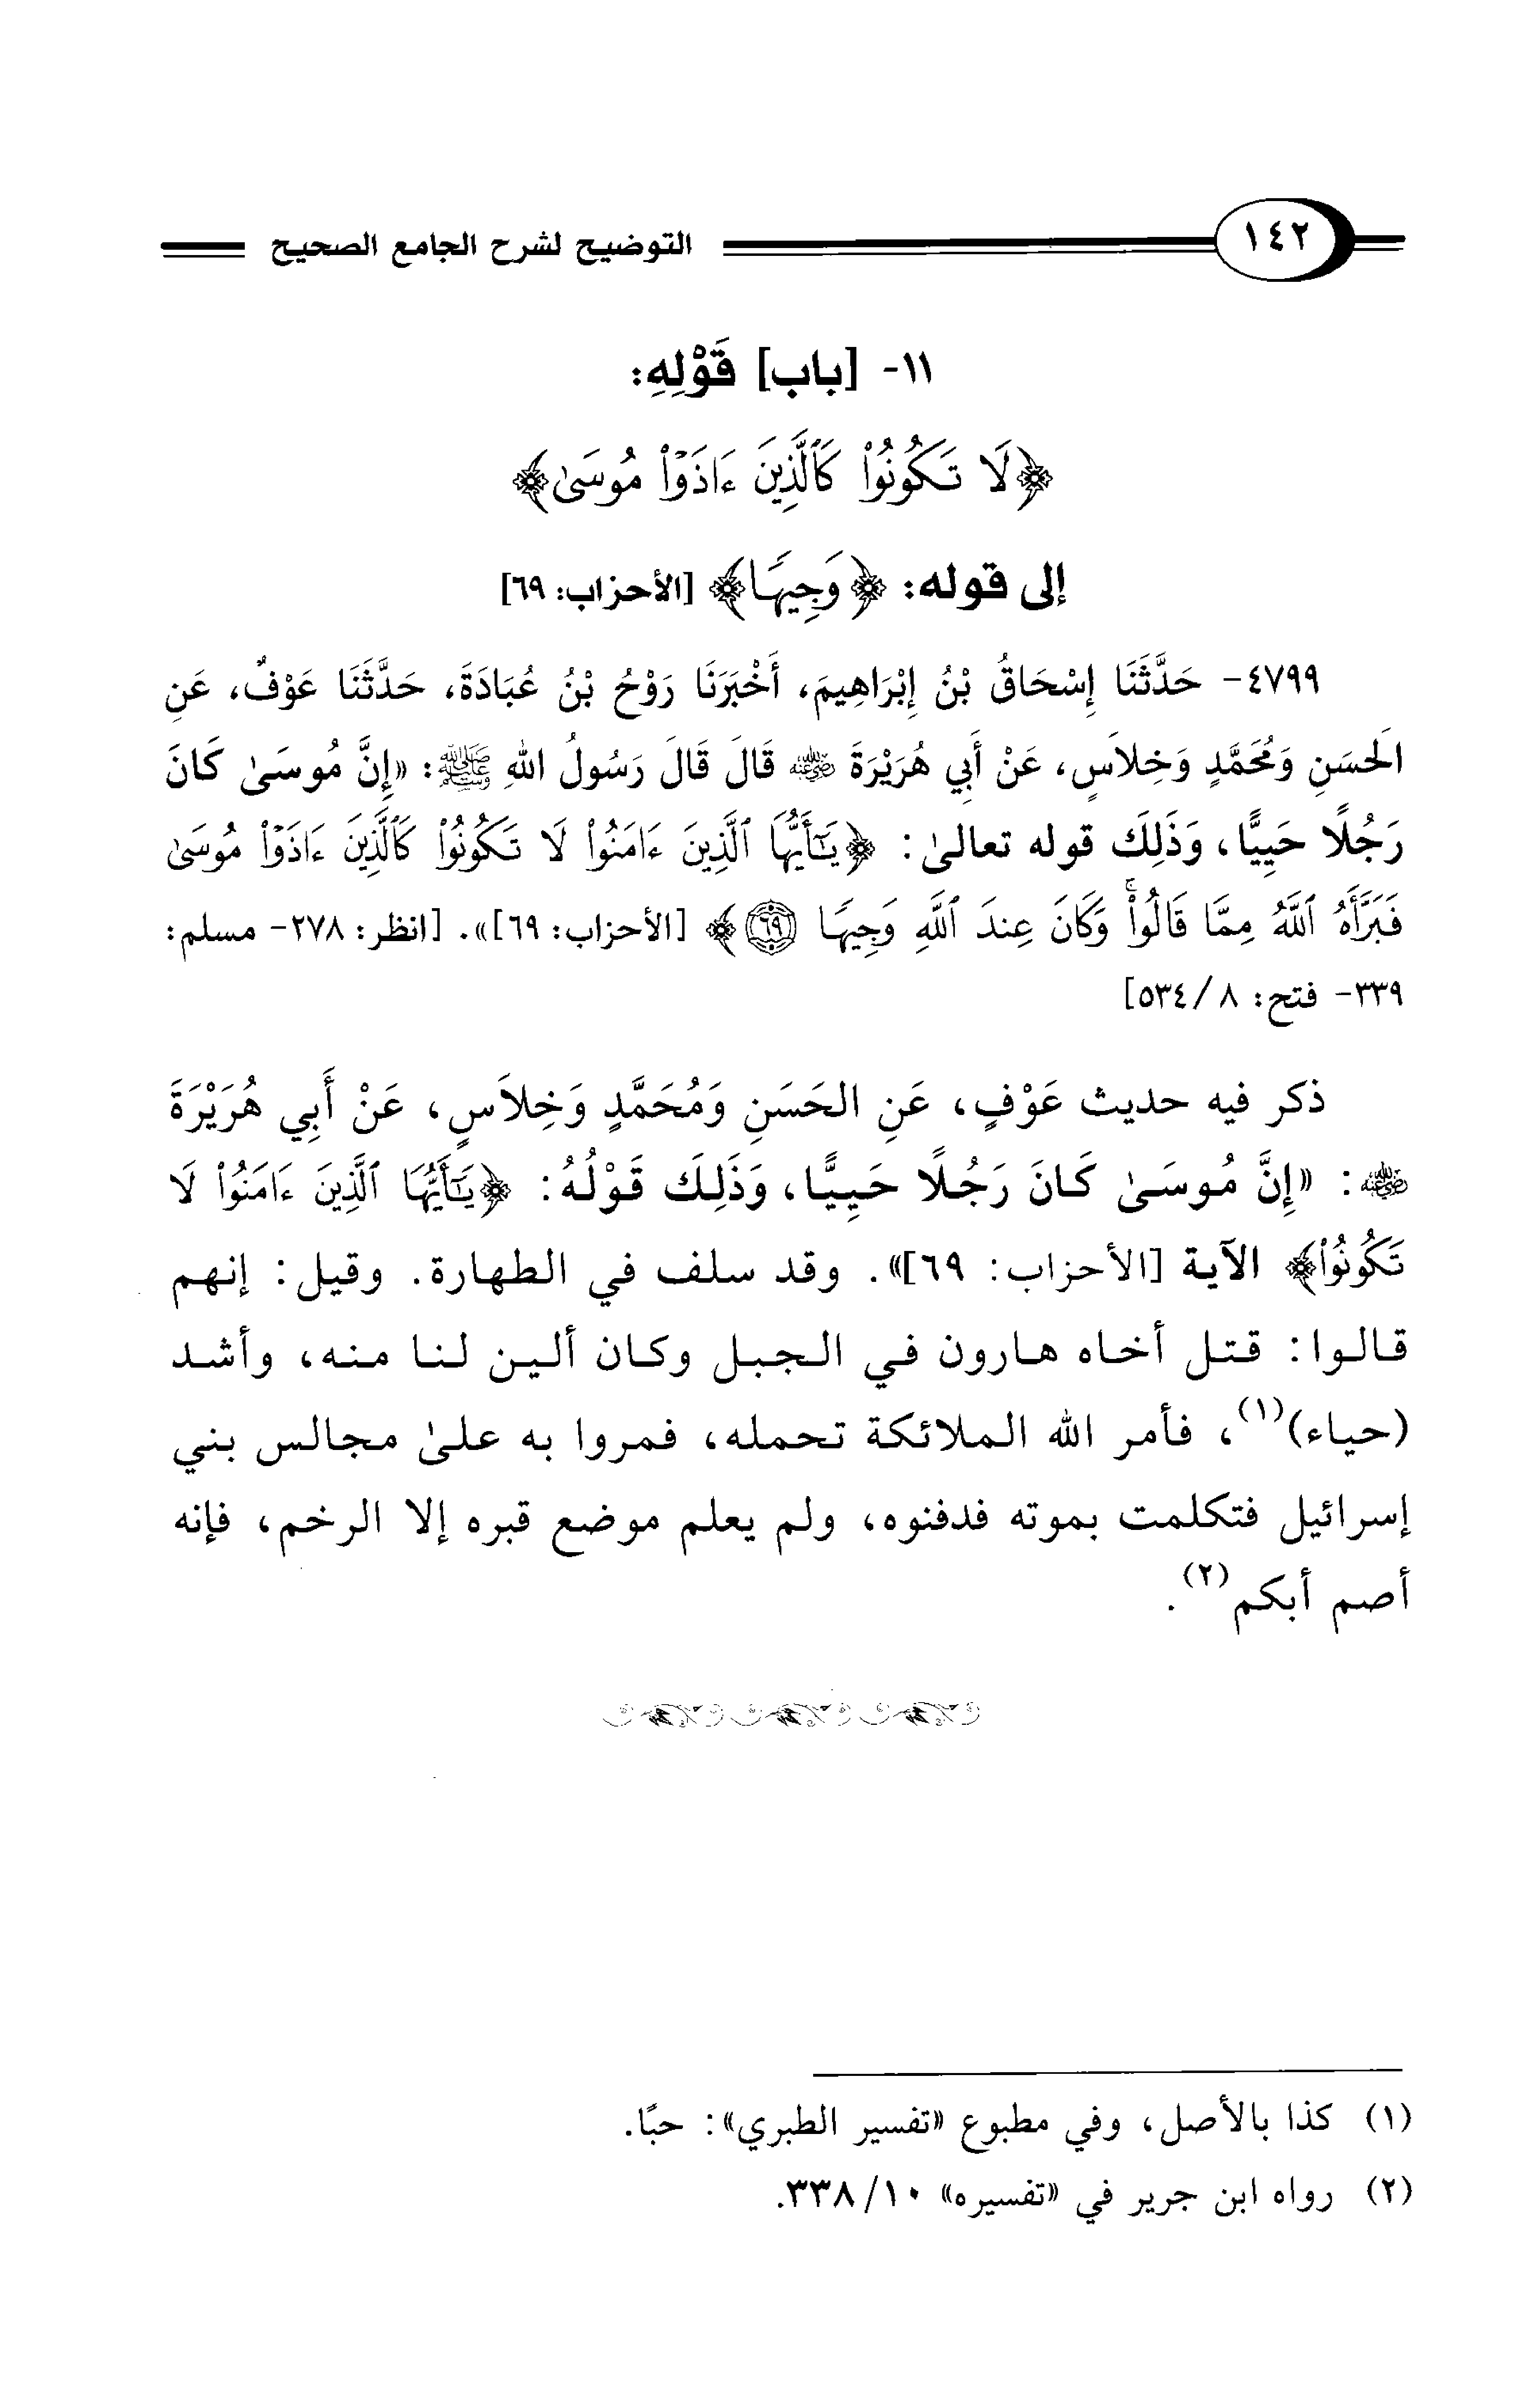 ١٤٢ التوضيح لشرح الجامع الصحيح
١١- [باب] قَوْلِهِ:
﴿لَا تَكُونُوا۟ كَٱلَّذِينَ ءَاذَوْا۟ مُوسَىٰ﴾
إلى قوله: ﴿وَجِيهًا﴾ [الأحزاب: ٦٩]
٤٧٩٩- حَدَّثَنَا إِسْحَاقُ بْنُ إِبْرَاهِيمَ، أَخْبَرَنَا رَوْحُ بْنُ عُبَادَةَ، حَدَّثَنَا عَوْفٌ، عَنِ
الَحسَنِ وَمُحَمَّدٍ وَخِلاَسٍ، عَنْ أَبِي هُرَيْرَةَ رضي الله عنه قَالَ قَالَ رَسُولُ اللهِ ﷺ: «إِنَّ مُوسَىٰ كَانَ
رَجُلًا حَيِيًّا، وَذَلِكَ قوله تعالىٰ: ﴿يَـٰٓأَيُّهَا ٱلَّذِينَ ءَامَنُوا۟ لَا تَكُونُوا۟ كَٱلَّذِينَ ءَاذَوْا۟ مُوسَىٰ
فَبَرَّأَهُ ٱللَّهُ مِمَّا قَالُوا۟ۚ وَكَانَ عِندَ ٱللَّهِ وَجِيهًا ٦٩﴾ [الأحزاب: ٦٩]». [انظر: ٢٧٨- مسلم:
٣٣٩- فتح: ٨/ ٥٣٤]
ذكر فيه حديث عَوْفٍ، عَنِ الحَسَنِ وَمُحَمَّدٍ وَخِلاَسٍ، عَنْ أَبِي هُرَيْرَةَ
رضي الله عنه: «إِنَّ مُوسَىٰ كَانَ رَجُلًا حَيِيًّا، وَذَلِكَ قَوْلُهُ: ﴿يَـٰٓأَيُّهَا ٱلَّذِينَ ءَامَنُوا۟ لَا
تَكُونُوا۟﴾ الآية [الأحزاب: ٦٩]». وقد سلف في الطهارة. وقيل: إنهم
قالوا: قتل أخاه هارون في الجبل وكان ألين لنا منه، وأشد
(حياء)(١)، فأمر الله الملائكة تحمله، فمروا به علىٰ مجالس بني
إسرائيل فتكلمت بموته فدفنوه، ولم يعلم موضع قبره إلا الرخم، فإنه
أصم أبكم(٢).
(١) كذا بالأصل، وفي مطبوع «تفسير الطبري»: حبًا.
(٢) رواه ابن جرير في «تفسيره» ١٠/ ٣٣٨.